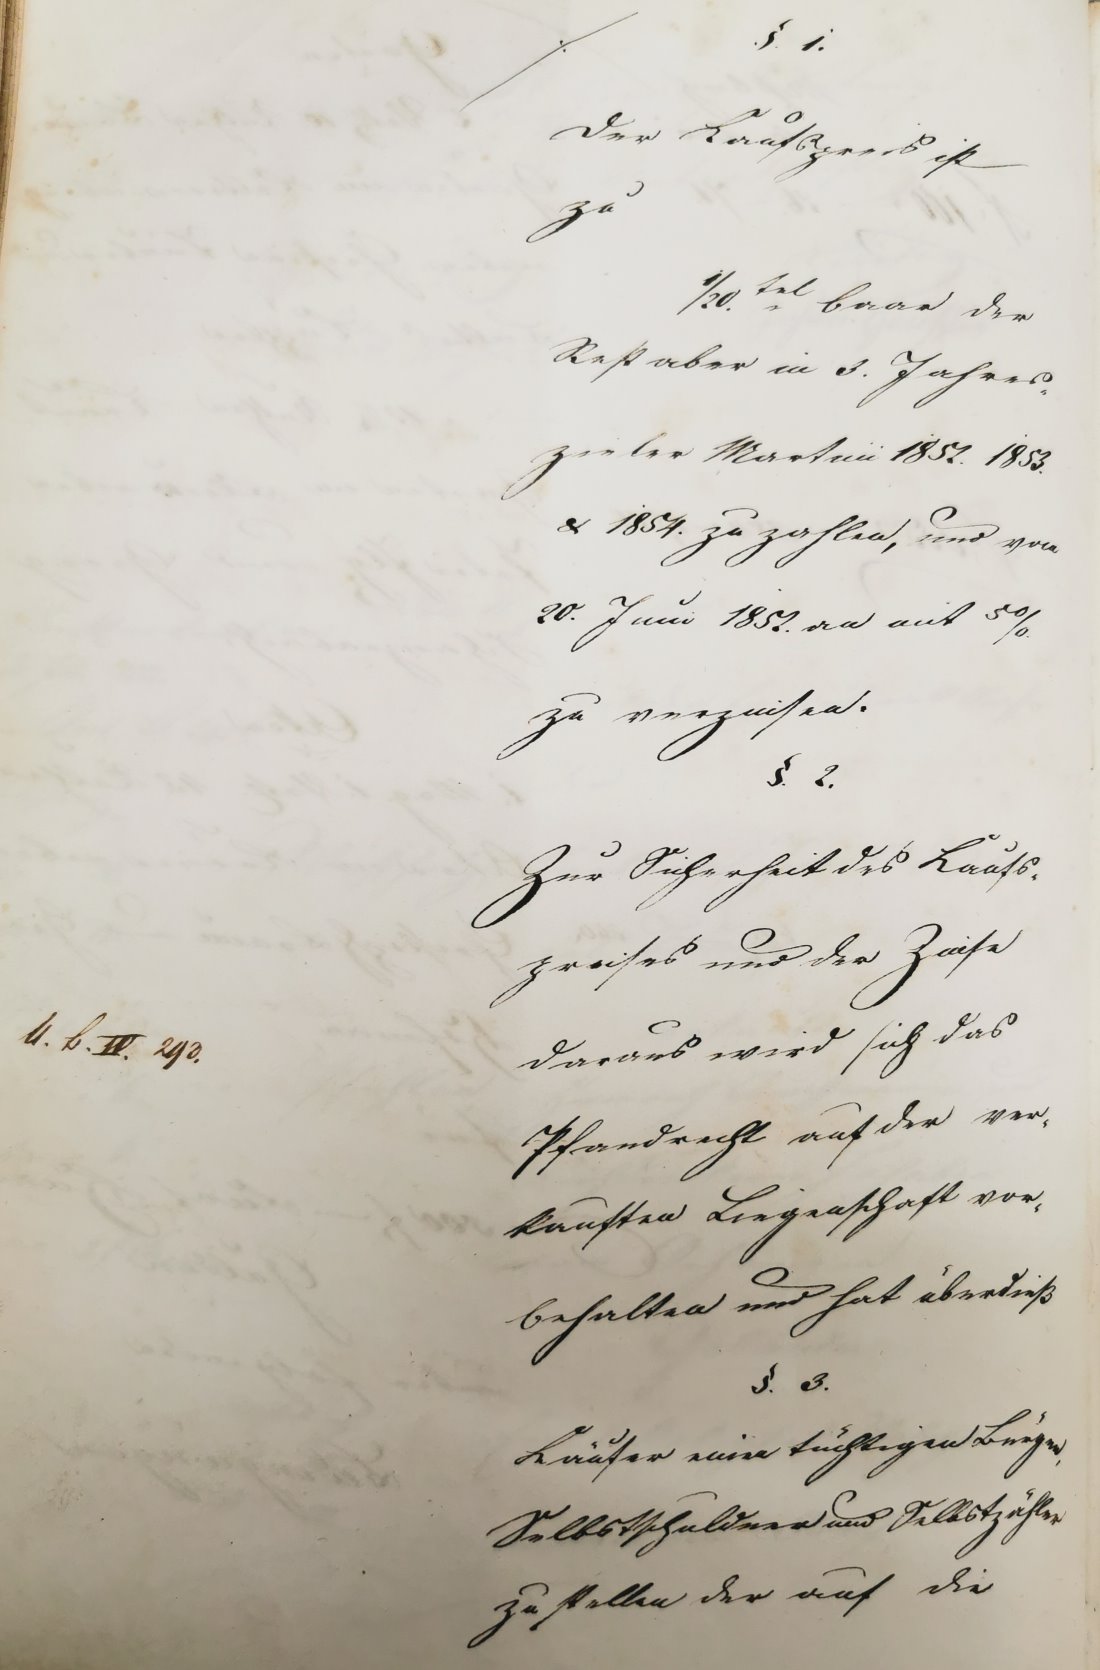 §. 1.
Der Kaufspreis ist
zu
1/20.tel baar der
Rest aber in 3. Jahres-
zieler Martini 1852. 1853.
& 1854. zu zahlen, und vom
20. Juni 1852. an mit 5%
zu verzinsen.
§. 2.
Zur Sicherheit des Kaufs-
preises und der Zinse
daraus wird sich das
U. B. IV. 293.
Pfandrecht auf der ver-
kauften Liegenschaft vor-
behalten und hat überdieß
§. 3.
Käufer einen tüchtigen Bürgen,
Selbstschuldner und Selbstzahler
zu stellen der auf die